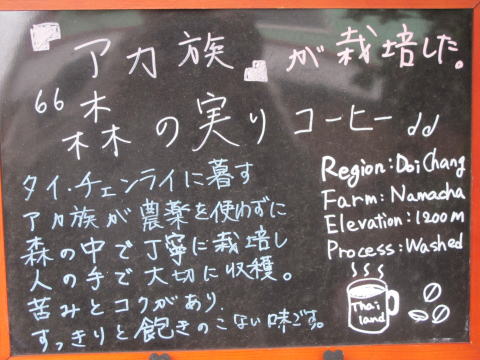 『アカ族』が栽培した。
“森の実りコーヒー”
タイ・チェンライに暮す
アカ族が農薬を使わずに
森の中で丁寧に栽培し
人の手で大切に収穫。
苦みとコクがあり、
すっきりと飽きのこない味です。
Region:Doi Chang
Farm:Namacha
Elevation:1200M
Process:Washed
Thai
land